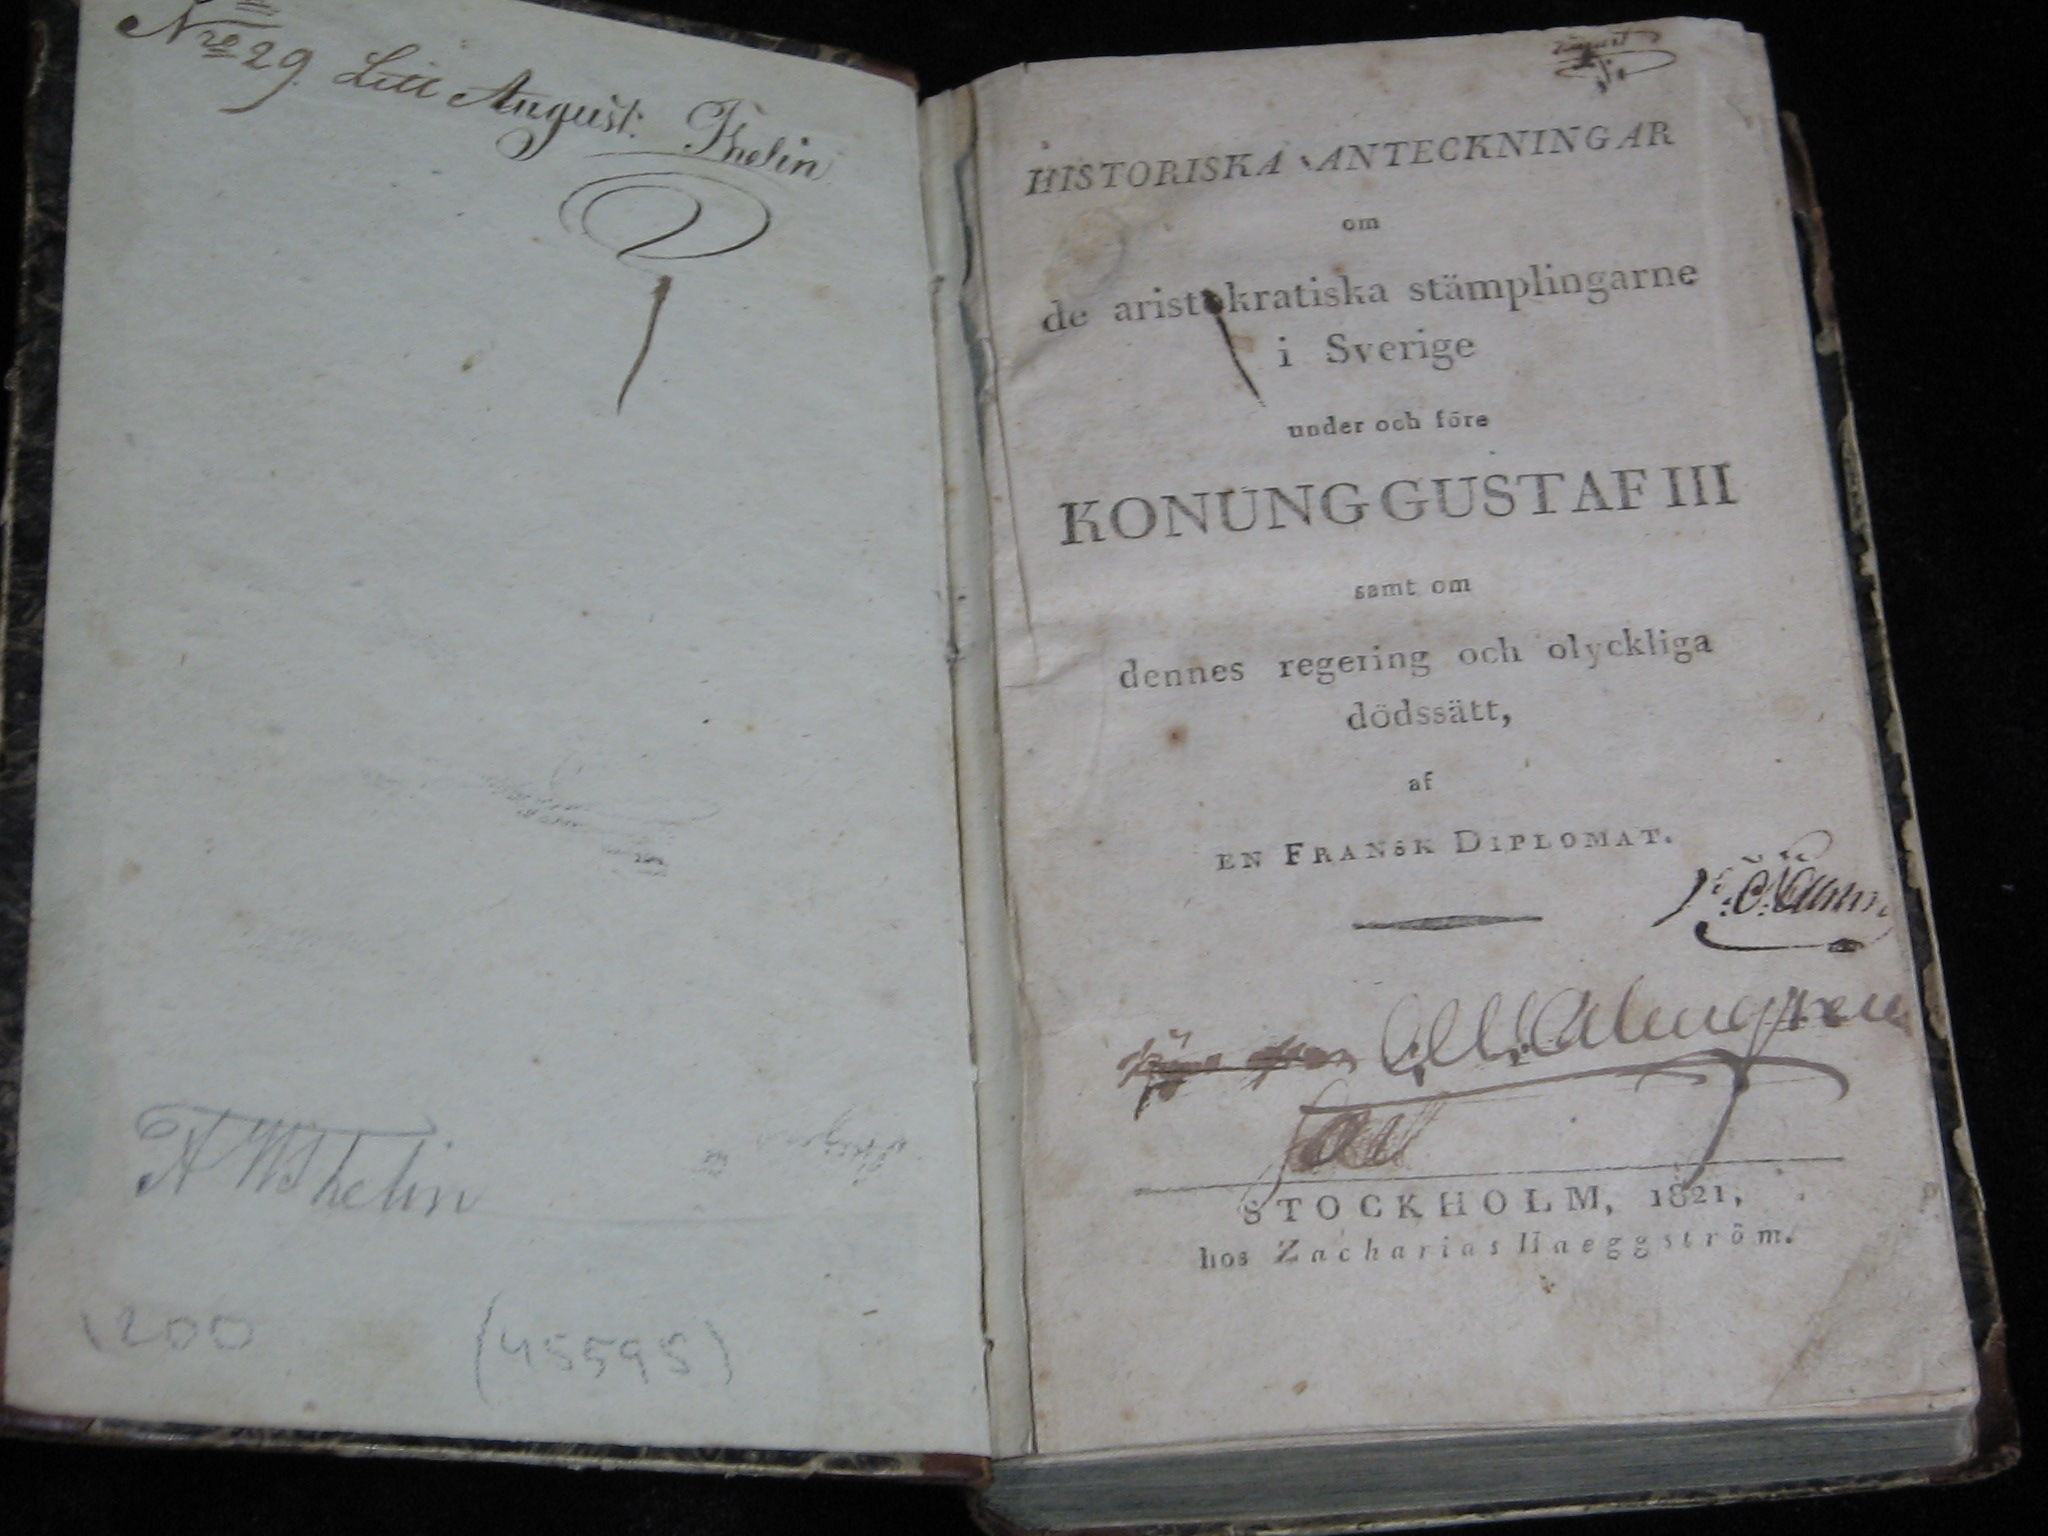 Nro 29. Litt August. Thelin
A W Thelin
1200 (45595)
August
HISTORISKA ANTECKNINGAR
om
de aristokratiska stämplingarne
i Sverige
under och före
KONUNG GUSTAF III
samt om
dennes regering och olyckliga
dödssätt,
af
EN FRANSK DIPLOMAT.
Malmgren
STOCKHOLM, 1821,
hos Zacharias Haeggström.